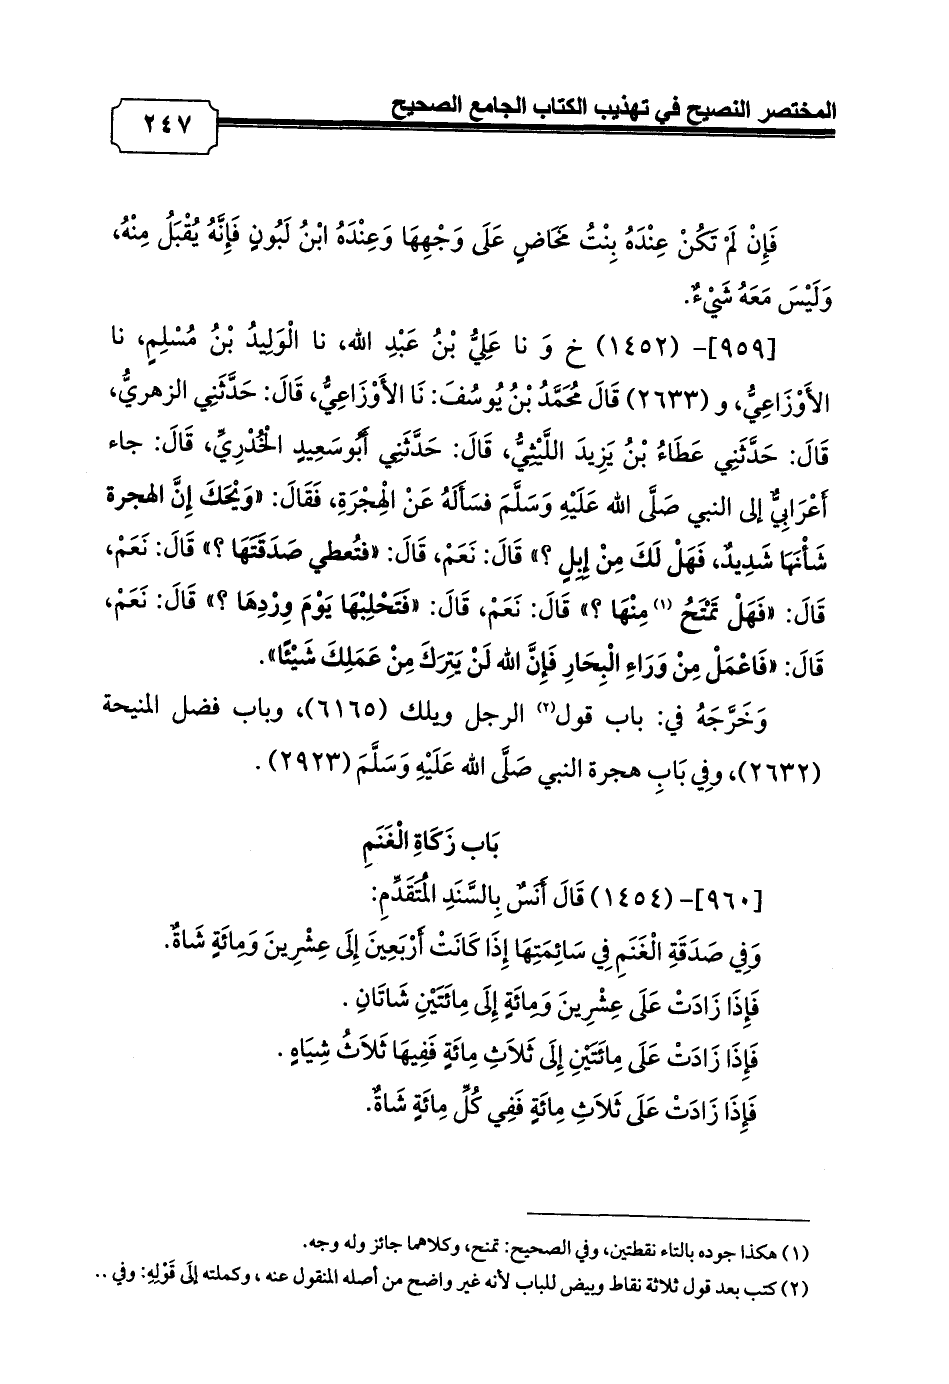 المختصر النصيح في تهذيب الكتاب الجامع الصحيح
٢٤٧
فَإِنْ لَمْ تَكُنْ عِنْدَهُ بِنْتُ مَخَاضٍ عَلَى وَجْهِهَا وَعِنْدَهُ ابْنُ لَبُونٍ فَإِنَّهُ يُقْبَلُ مِنْهُ،
وَلَيْسَ مَعَهُ شَيْءٌ.
[٩٥٩]- (١٤٥٢) خ وَ نا عَلِيُّ بْنُ عَبْدِ الله، نا الْوَلِيدُ بْنُ مُسْلِمٍ، نا
الأَوْزَاعِيُّ، و (٢٦٣٣) قَالَ مُحَمَّدُ بْنُ يُوسُفَ: نَا الأَوْزَاعِيُّ، قَالَ: حَدَّثَنِي الزهريُّ،
قَالَ: حَدَّثَنِي عَطَاءُ بْنُ يَزِيدَ اللَّيْثِيُّ، قَالَ: حَدَّثَنِي أَبُوسَعِيدٍ الْخُدْرِيُّ، قَالَ: جاء
أَعْرَابِيٌّ إلى النبي صَلَّى الله عَلَيْهِ وَسَلَّمَ فسَأَلَهُ عَنْ الْهِجْرَةِ، فَقَالَ: «وَيْحَكَ إِنَّ الهجرة
شَأْنَهَا شَدِيدٌ، فَهَلْ لَكَ مِنْ إِبِلٍ ؟» قَالَ: نَعَمْ، قَالَ: «فتُعطي صَدَقَتَهَا ؟» قَالَ: نَعَمْ،
قَالَ: «فَهَلْ تَمْتَحُ (١) مِنْهَا ؟» قَالَ: نَعَمْ، قَالَ: «فَتَحْلِبُهَا يَوْمَ وِرْدِهَا ؟» قَالَ: نَعَمْ،
قَالَ: «فَاعْمَلْ مِنْ وَرَاءِ الْبِحَارِ فَإِنَّ الله لَنْ يَتِرَكَ مِنْ عَمَلِكَ شَيْئًا».
وَخَرَّجَهُ في: باب قول(٢) الرجل ويلك (٦١٦٥)، وباب فضل المنيحة
(٢٦٣٢)، وفِي بَابِ هجرة النبي صَلَّى الله عَلَيْهِ وَسَلَّمَ (٢٩٢٣) .
بَاب زَكَاةِ الْغَنَمِ
[٩٦٠]- (١٤٥٤) قَالَ أَنَسٌ بِالسَّنَدِ الْمُتَقَدِّمِ:
وَفِي صَدَقَةِ الْغَنَمِ فِي سَائِمَتِهَا إِذَا كَانَتْ أَرْبَعِينَ إِلَى عِشْرِينَ وَمِائَةٍ شَاةٌ.
فَإِذَا زَادَتْ عَلَى عِشْرِينَ وَمِائَةٍ إِلَى مِائَتَيْنِ شَاتَانِ .
فَإِذَا زَادَتْ عَلَى مِائَتَيْنِ إِلَى ثَلاَثِ مِائَةٍ فَفِيهَا ثَلاَثُ شِيَاهٍ .
فَإِذَا زَادَتْ عَلَى ثَلاَثِ مِائَةٍ فَفِي كُلِّ مِائَةٍ شَاةٌ.
(١) هكذا جوده بالتاء نقطتين، وفي الصحيح: تمنح، وكلاهما جائز وله وجه.
(٢) كتب بعد قول ثلاثة نقاط وبيض للباب لأنه غير واضح من أصله المنقول عنه ، وكملته إلَى قَوْلِهِ: وفي ..